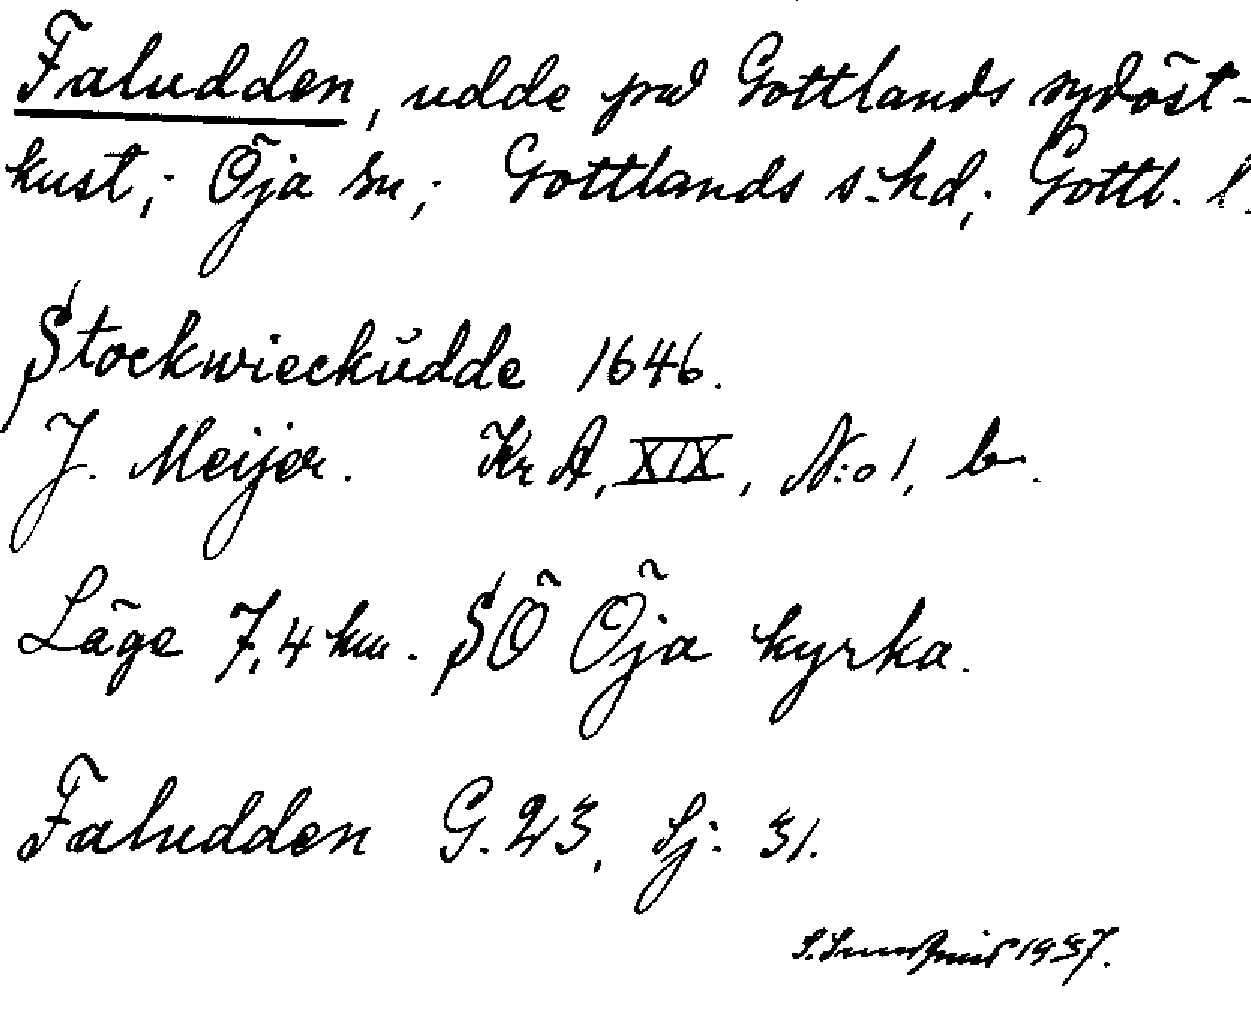 Faludden, udde på Gottlands sydöst-
kust; Öja sn; Gottlands s:hd; Gottl. l.
Stockwieckŭdde 1646.
J. Meijer. Kr A, XIX, N:o 1, b.
Läge 7,4 km. SÖ Öja kyrka.
Faludden G. 23, Sj: 31.
1937.